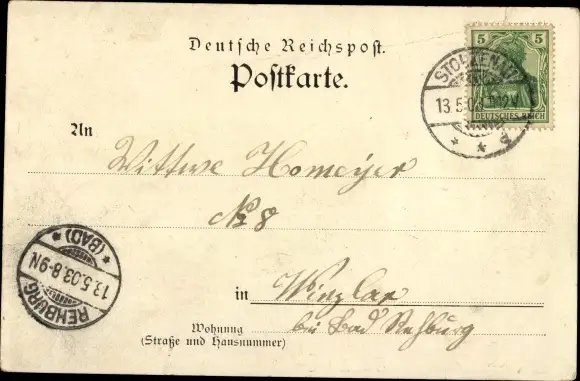 Deutsche Reichspost.
Postkarte.
5 5
DEUTSCHES REICH
STOLZENAU
13.5.03. 11-12V.
An
Wittwe Homeyer
No 8
in Winzlar
bei Bad Rehburg
Wohnung
(Straße und Hausnummer)
REHBURG
13.5.03.8-9N
* (BAD) *